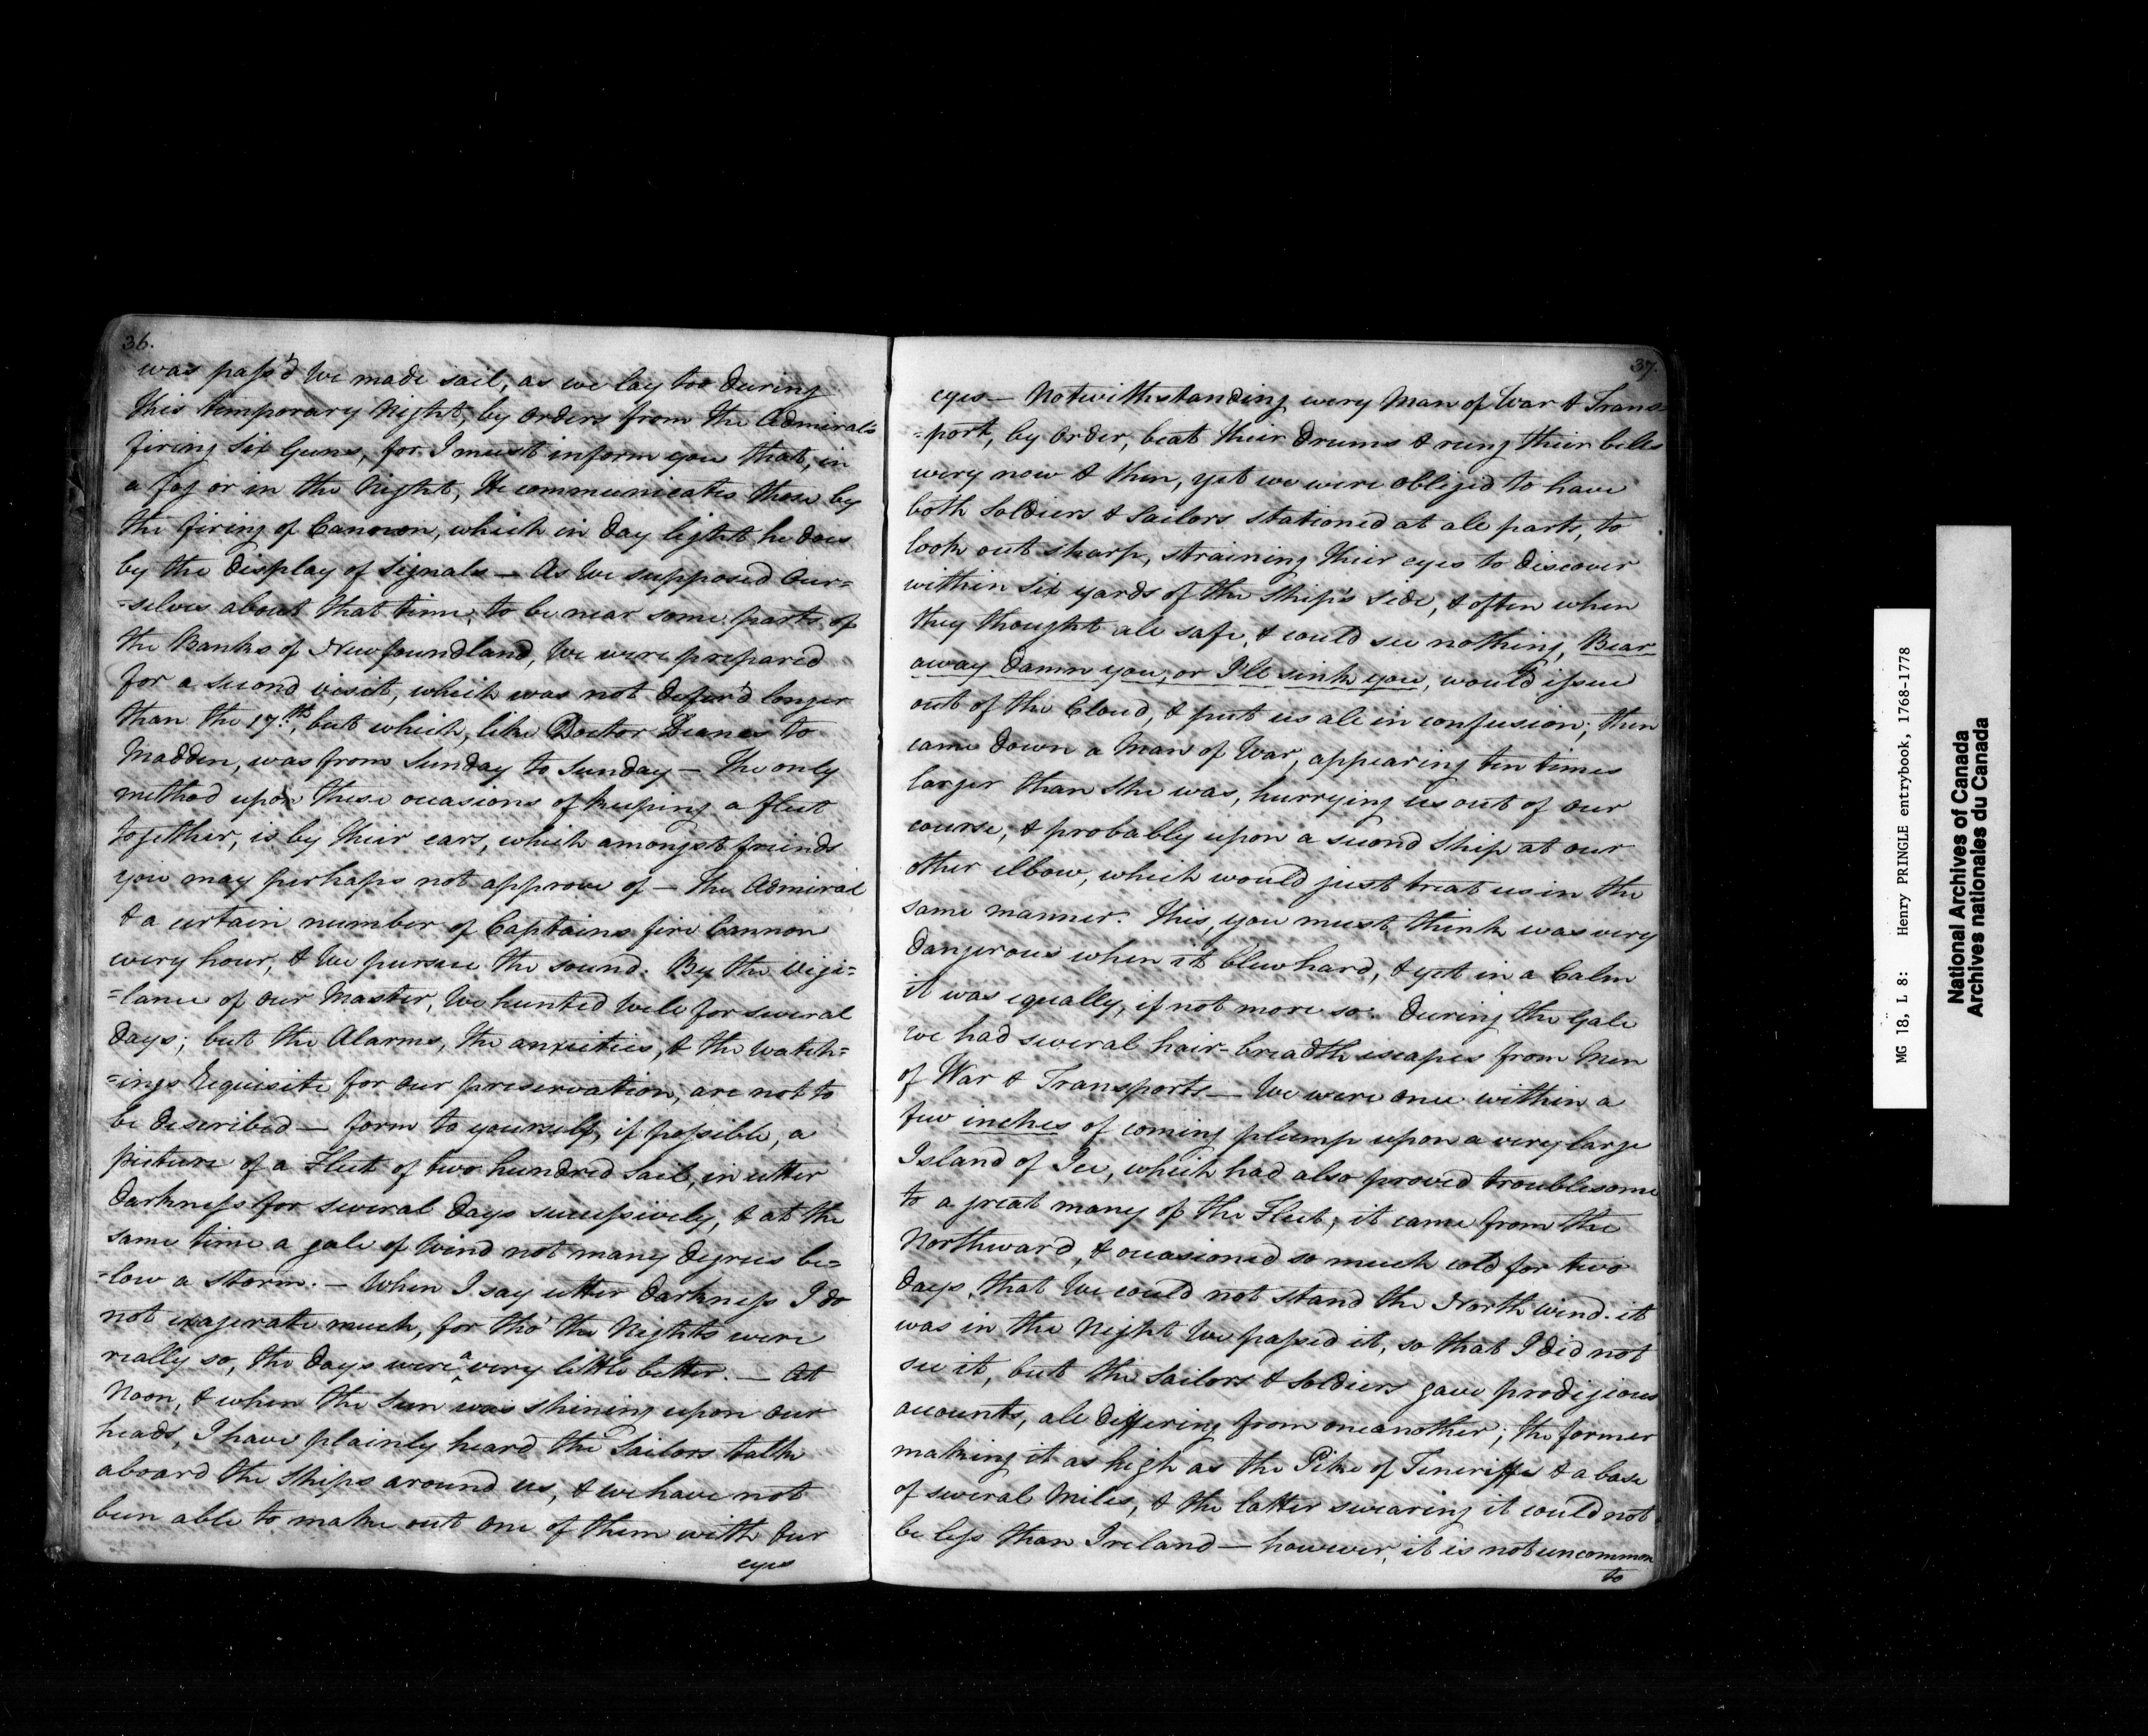 36.
was pass'd We made sail, as we lay too During
this temporary Night, by orders from the Admiral's
firing Six Guns, for I must inform you that, in
a fog or in the Night, He communicates those by
the firing of Cannon, which in Day light he does
by the Display of Signals — As We supposed Our=
=selves about that time, to be near some parts of
the Banks of Newfoundland, We were prepared
for a second visit, which was not Defer'd longer
than the 17.th, but which, like Doctor Deanes to
Madden, was from Sunday to Sunday — The only
method upon these occasions of keeping a fleet
together, is by their ears, which amongst friends
you may perhaps not approve of — The Admiral
& a certain number of Captains fire Cannon
every hour, & We pursue the sound. By the Vigi=
=lance of our Master, We hunted Well for several
Days; but the Alarms, the anxieties, & the watch=
=ings Requisite for our preservation, are not to
be Described — form to yourself, if possible, a
picture of a Fleet of two hundred Sail, in utter
Darkness for several Days successively, & at the
same time a gale of Wind not many Degrees be=
=low a storm. — When I say utter Darkness I do
not exagerate much, for tho' the Nights were
really so, the Days were a very little better. — At
Noon, & when the Sun was shining upon our
heads, I have plainly heard the Sailors talk
aboard the Ships around us, & we have not
been able to make out one of them with our
eyes
37.
eyes — Notwithstanding every Man of War & Trans=
=port, by Order, beat their Drums & rung their bells
every now & then, yet we were obliged to have
both Soldiers & Sailors stationed at all parts, to
look out sharp, straining their eyes to Discover
within Six yards of the Ship's Side, & often when
they thought all safe, & could see nothing, Bear
away Damn you, or I'll sink you, would issue
out of the Cloud, & put us all in confusion; then
came Down a Man of War, appearing ten times
larger than She was, hurrying us out of our
course, & probably upon a second Ship at our
other elbow, which would just treat us in the
same manner. This, you must think was very
Dangerous when it blew hard, & yet in a Calm
it was equally, if not more so. During the Gale
we had several hair-breadth escapes from Men
of War & Transports — We were once within a
few inches of coming plump upon a very large
Island of Ice, which had also proved troublesome
to a great many of the Fleet; it came from the
Northward, & occasioned so much cold for two
Days, that We could not stand the North wind. it
was in the Night We passed it, so that I Did not
see it, but the Sailors & Soldiers gave prodigious
accounts, all Differing from oneanother; the former
making it as high as the Pike of Teneriffe & a base
of several Miles, & the latter swearing it could not
be less than Ireland — however, it is not uncommon
to
MG 18, L 8: Henry PRINGLE entrybook, 1768-1778
National Archives of Canada
Archives nationales du Canada